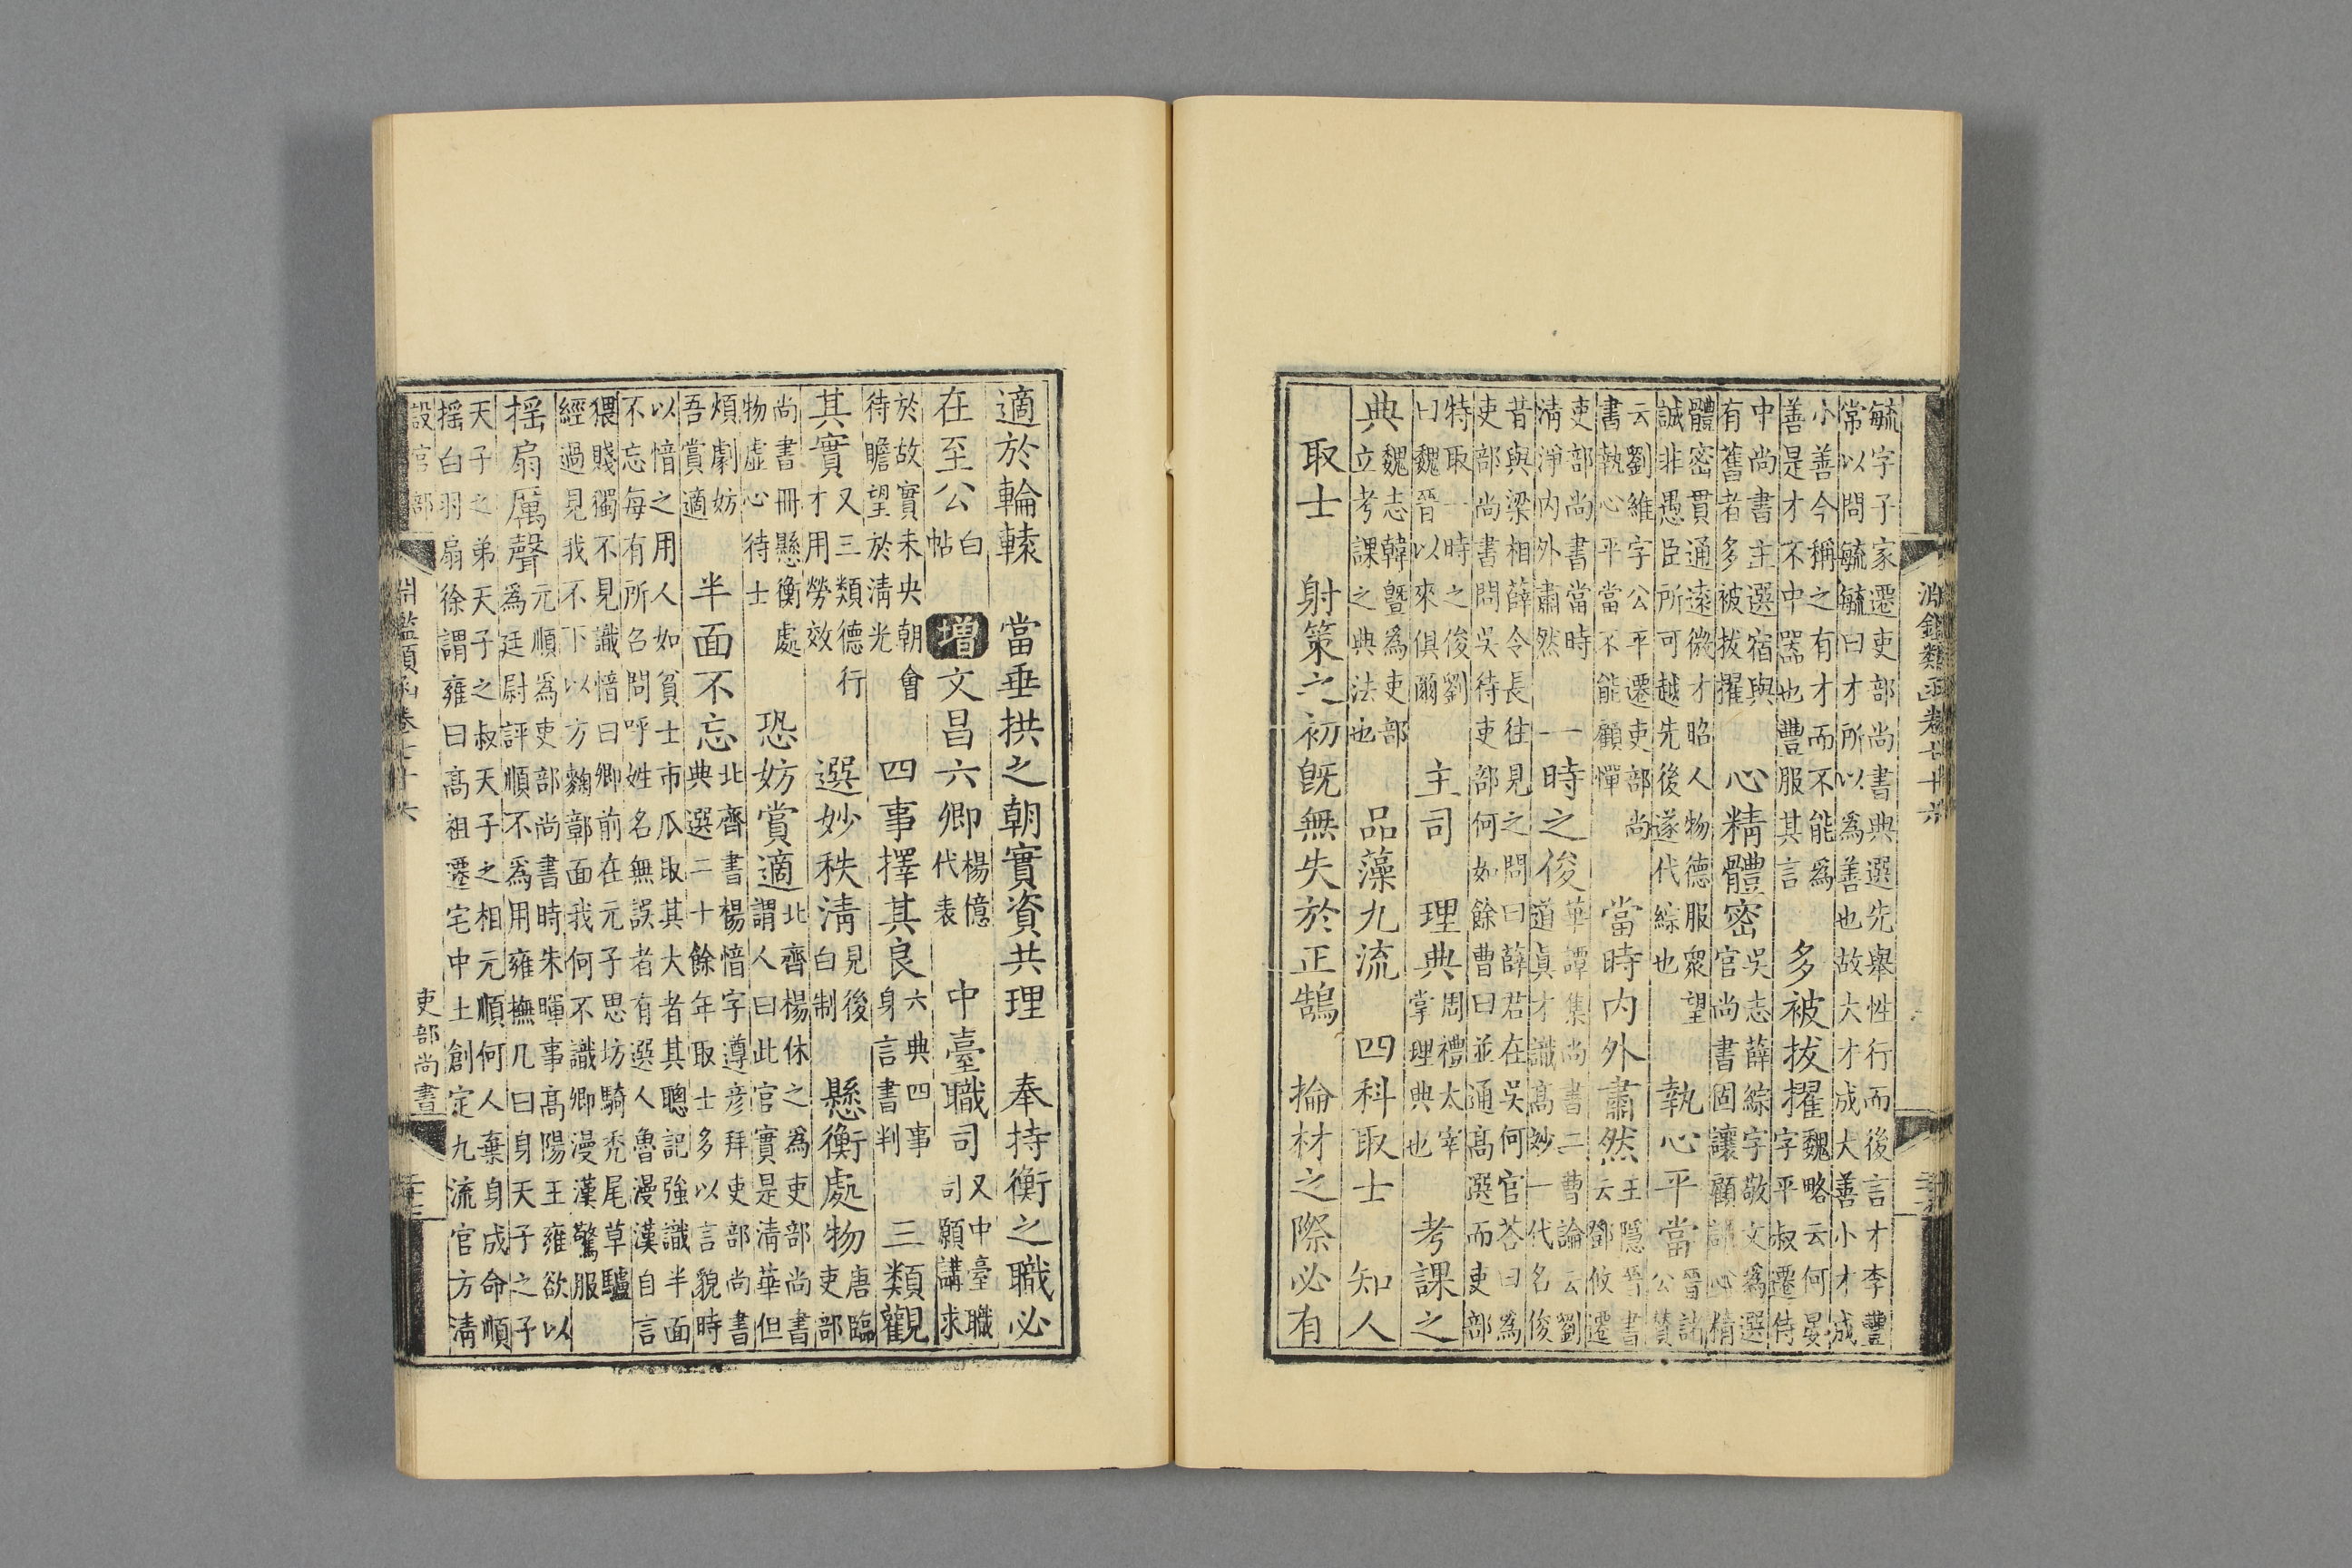 淵鑑類函卷七十六
毓字子家遷吏部尚書典選先舉性行而後言才李豐
常以問毓毓曰才所以爲善也故大才成大善小才成
小善今稱之有才而不能爲
善是才不中器也豐服其言
多被拔擢
魏略云何晏
字平叔遷侍
中尚書主選宿與
有舊者多被拔擢
心精體密
吳志薛綜字敬文爲選
官尚書固讓顧譚心精
體密貫通遠微才昭人物德服衆望
誠非愚臣所可越先後遂代綜也
執心平當
晉諸
公贊
云劉維字公平遷吏部尚
書執心平當不能顧憚
當時内外肅然
王隱晉書
云鄧攸遷
吏部尚書當時
清淨内外肅然
一時之俊
華譚集尚書二曹論云劉
道眞才識高妙一代名俊
昔與梁相薛令長往見之問曰薛君在吳何官荅曰爲
吏部尚書問吳待吏部何如餘曹曰並通高選而吏部
特取一時之俊劉
曰魏晉以來俱爾
主司　理典
周禮太宰
掌理典也
考課之
典
魏志韓曁爲吏部
立考課之典法也
品藻九流　四科取士　知人
取士　射策之初旣無失於正鵠　掄材之際必有
適於輪轅　當垂拱之朝實資共理　奉持衡之職必
在至公
白
帖
增文昌六卿
楊億
代表
中臺職司
又中臺職
司願講求
於故實未央朝會
待瞻望於清光
四事擇其良
六典四事
身言書判
三類觀
其實
又三類德行
才用勞效
選妙秩清
見後
白制
懸衡處物
唐臨
吏部
尚書冊懸衡處
物虛心待士
恐妨賞適
北齊楊休之爲吏部尚書
謂人曰此官實是清華但
煩劇妨
吾賞適
半面不忘
北齊書楊愔字遵彥拜吏部尚書
典選二十餘年取士多以言貌時
以愔之用人如貧士市瓜取其大者其聰記強識半面
不忘每有所召問呼姓名無誤者有選人魯漫漢自言
猥賤獨不見識愔曰卿前在元子思坊騎禿尾草驢
經過見我不下以方麴鄣面我何不識卿漫漢驚服
揺扇厲聲
元順爲吏部尚書時朱暉事高陽王雍欲以
爲廷尉評順不爲用雍撫几曰身天子之子
天子之弟天子之叔天子之相元順何人棄身成命順
揺白羽扇徐謂雍曰高祖遷宅中土創定九流官方清
淵鑑類函卷七十六
設官部
吏部尚書